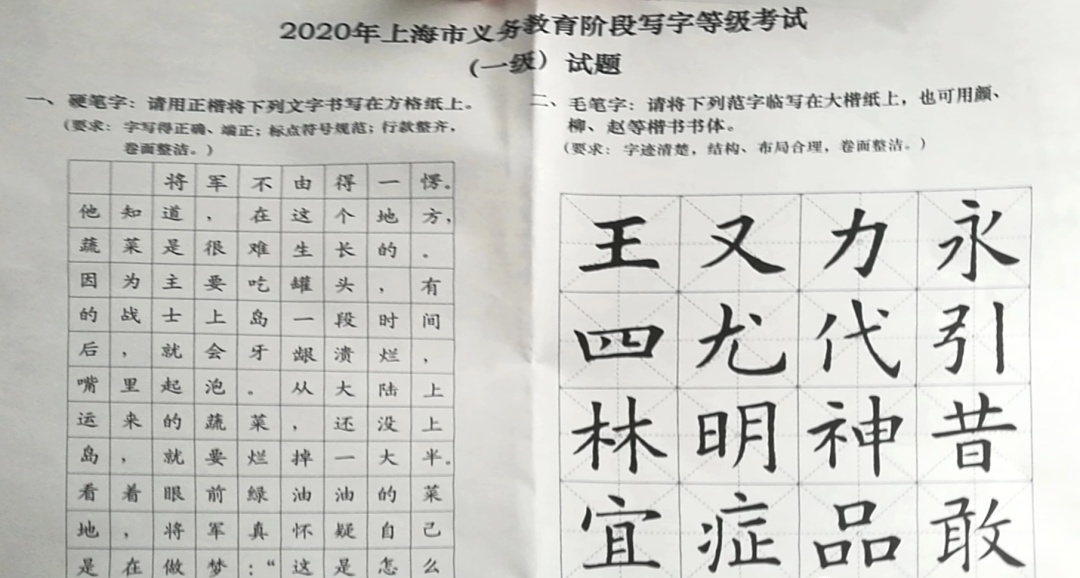 2020年上海市义务教育阶段写字等级考试
(一级)试题
一、硬笔字：请用正楷将下列文字书写在方格纸上。
(要求：字写得正确、端正；标点符号规范；行款整齐，
卷面整洁。)
将军不由得一愣。
他知道，在这个地方，
蔬菜是很难生长的。
因为主要吃罐头，有
的战士上岛一段时间
后，就会牙龈溃烂，
嘴里起泡。从大陆上
运来的蔬菜，还没上
岛，就要烂掉一大半。
看着眼前绿油油的菜
地，将军真怀疑自己
是在做梦：“这是怎么
二、毛笔字：请将下列范字临写在大楷纸上，也可用颜、
柳、赵等楷书书体。
(要求：字迹清楚，结构、布局合理，卷面整洁。)
王又力永
四尤代引
林明神昔
宜症品敢